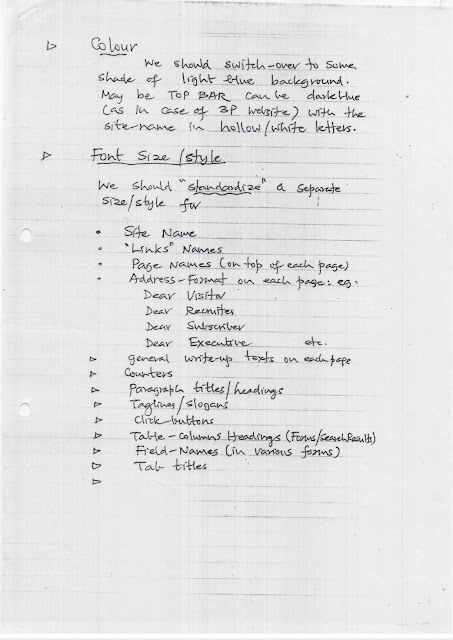 Colour
We should switch-over to some
shade of light blue background.
May be TOP BAR can be darkblue
(as in case of 3P website) with the
site-name in hollow/white letters.
Font Size/style
We should "standardize" a separate
size/style for
Site Name
"Links" Names
Page Names (on top of each page)
Address-Format on each page: eg:
Dear Visitor
Dear Recruiter
Dear Subscriber
Dear Executive etc.
general write-up texts on each page
Counters
Paragraph titles/headings
Taglines/slogans
Click-buttons
Table-columns Headings (Forms/Search Results)
Field-Names (in various forms)
Tab titles